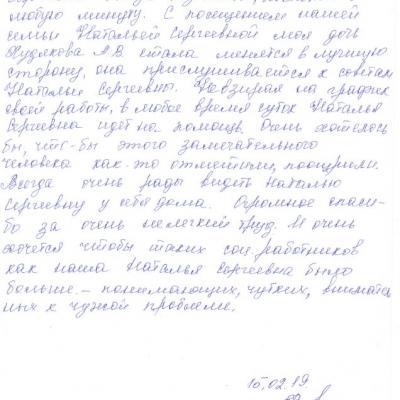 любую минуту. С посещением нашей
семьи Натальей Сергеевной моя дочь
Худякова А.В. стала меняется в лучшую
сторону, она прислушивается к советам
Натальи Сергеевны. Невзирая на график
своей работы, в любое время суток Наталья
Сергеевна идет на помощь. Очень хотелось
бы, что-бы этого замечательного
человека как-то отметили, поощрили.
Всегда очень рады видеть Наталью
Сергеевну у себя дома. Огромное спаси-
бо за очень нелегкий труд. И очень
хочется чтобы таких соц.работников
как наша Наталья Сергеевна было
больше - понимающих, чутких, внимате
ных к чужой проблеме.
10.02.19.